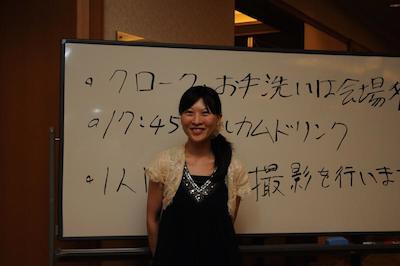 ・クローク お手洗いは会場
・17:45 ルカムドリンク
・1人 撮影を行いま